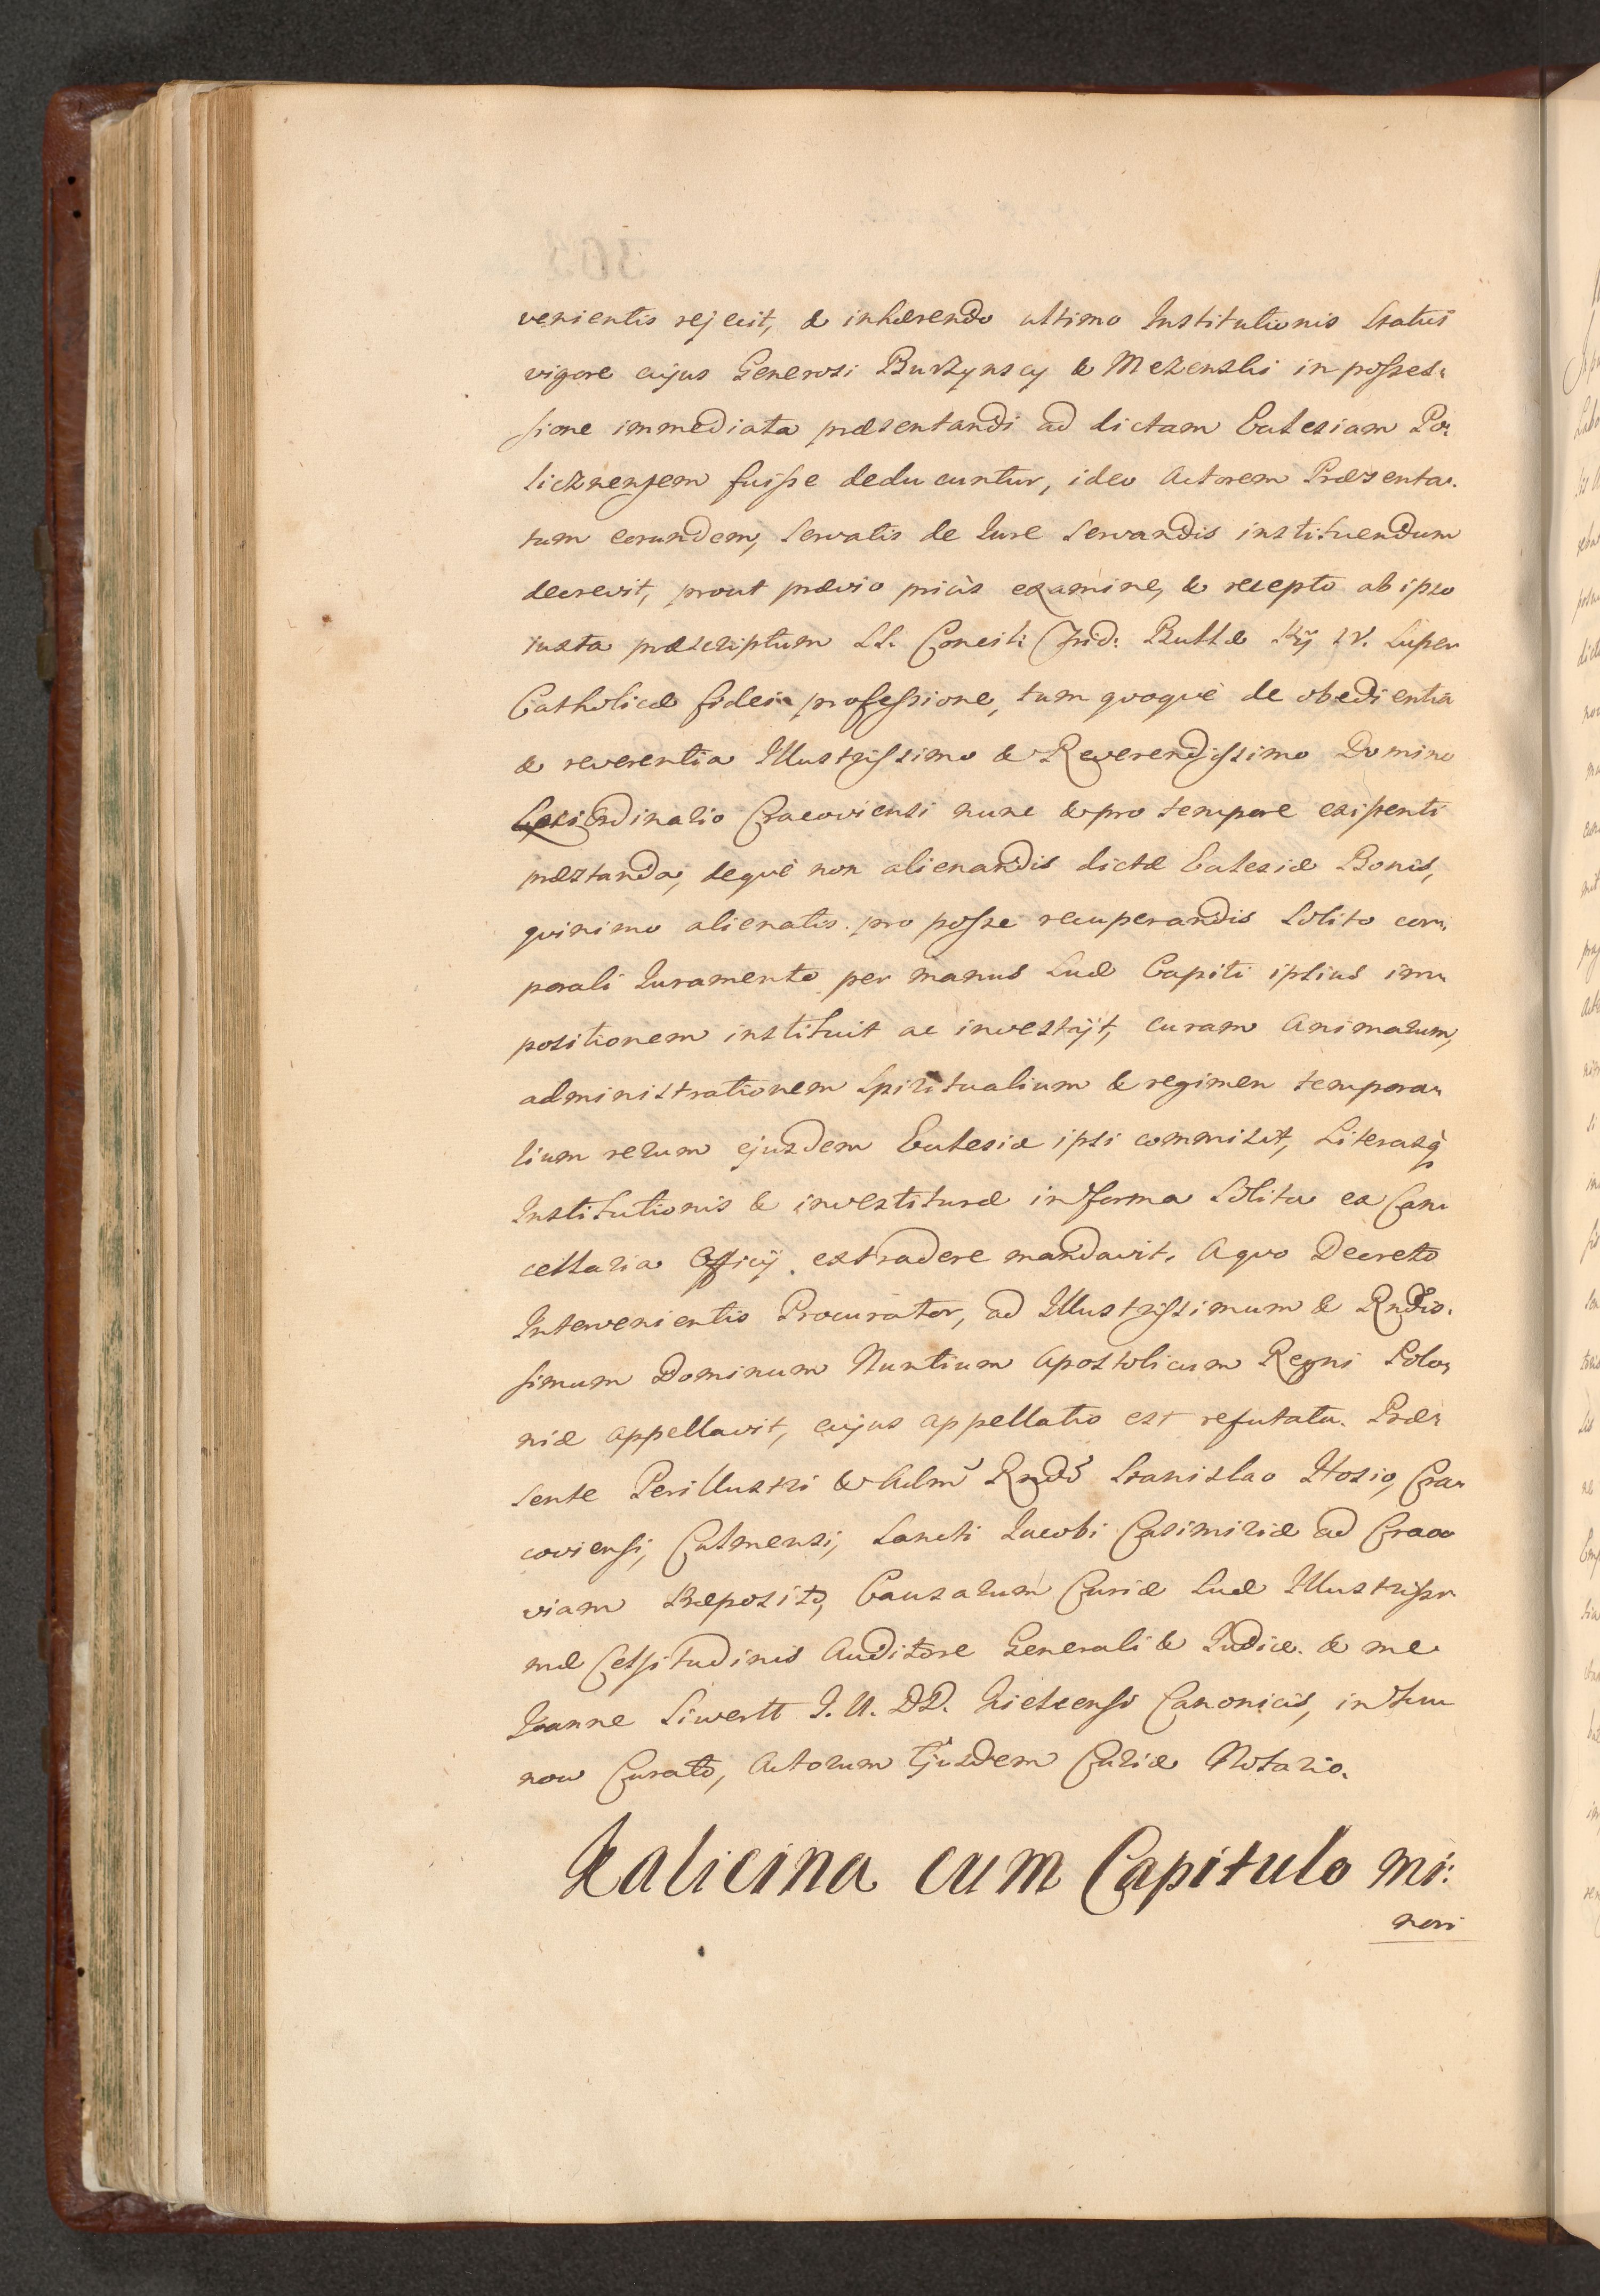 venientis rejecit, & inhærendo ultimo Institutionis Statui
vigore cujus Generosi Burzynscy & Mezenski in posses„
sione immediata præsentandi ad dictam Ecclesiam Po„
licznensem fuisse deducuntur, ideo Actorem Præsenta„
tum eorundem, servatis de Iure servandis instituendum
decrevit, prout prævio priùs examine, & recepto ab ipso
iuxta præscriptum SS. Concil: Trid: Bullæ Pij IV. super
Catholicæ fidei professione, tum quoquè de obedientia
& reverentia Illustrissimo & Reverendissimo Domino
Ordinario Cracoviensi nunc & pro tempore existenti
præstanda, dequè non alienandis dictæ Ecclesiæ Bonis,
quinimo alienatis pro posse recuperandis solito cor„
porali Iuramento per manus suæ Capiti ipsius im„
positionem instituit ac investijt, curam animarum,
administrationem Spiritualium & regimen tempora„
lium rerum ejusdem Ecclesiæ ipsi commisit, Literasq̀
Institutionis & investituræ in forma solita ex Can„
cellaria Officij extradere mandavit. A quo Decreto
Intervenientis Procurator, ad Illustrissimum & Rndis„
simum Dominum Nuntium Apostolicum Regni Polo„
niæ appellavit, cujus appellatio est refutata. Præ„
sente Perillustri & Adm̃ Rndõ Stanislao Hosio, Cra„
coviensi, Culmensi, Sancti Iacobi Casimiriæ ad Craco
viam Præposito, Causarum Curiæ Suæ Illustrissi„
mæ Celsitudinis Auditore Generali & Iudice & me
Ioanne Siwertt I. U. DD. Kielcensi Canonico, in
now Curato, Actorum Ejusdem Curiæ Notario.
Kalicina cum Capitulo mi:
nori